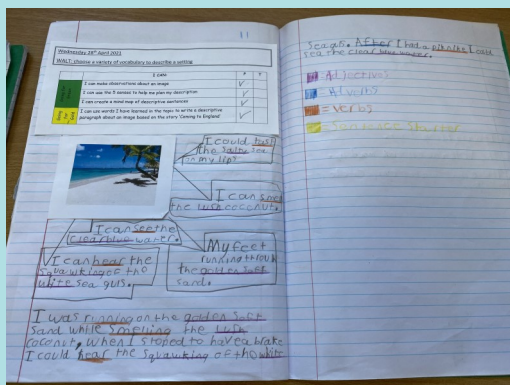 11
Wednesday 28th April 2021
WALT: choose a variety of vocabulary to describe a setting
I CAN:
I can make observations about an image
I can use the 5 senses to help me plan my description
I can create a mind map of descriptive sentences
I can use words I have learned in the topic to write a descriptive
paragraph about an image based on the story 'Coming to England'
I could tast
the salty sea
on my lips
I can smell
the lush coconut.
I can see the
clear blue water.
I can hear the
squawking of the
white sea guls.
My feet
running throuh
the golden soft
sand.
I was running on the golden soft
sand while smelling the lush
coconut, when I stoped to have a brake
I could hear the squawking of the white
Sea guls. After I had a I could
sea the clear blue water.
= Adjectives
= Adverbs
= Verbs
= Sentence Starter